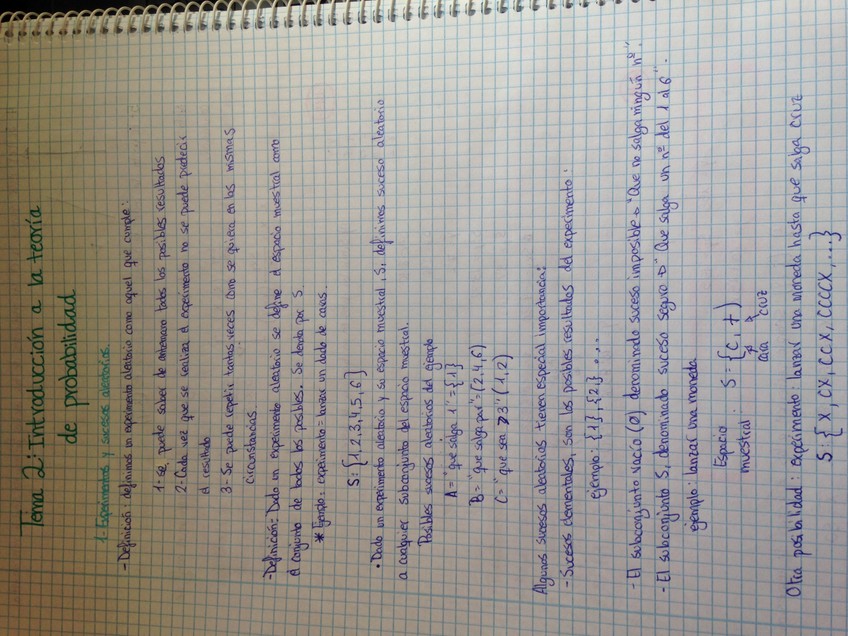 Tema 2: Introducción a la teoría
de probabilidad
1- Experimentos y sucesos aleatorios.
- Definición: definimos un experimento aleatorio como aquel que cumple:
1- se puede saber de antemano todos los posibles resultados
2- Cada vez que se realiza el experimento no se puede predecir
el resultado
3- Se puede repetir tantas veces como se quiera en las mismas
circunstancias.
- Definición: Dado un experimento aleatorio se define el espacio muestral como
el conjunto de todos los posibles. Se denota por S.
* Ejemplo: experimento = lanzar un dado de caras.
S: {1,2,3,4,5,6}
• Dado un experimento aleatorio y su espacio muestral, S, definimos suceso aleatorio
a cualquier subconjunto del espacio muestral.
Posibles sucesos aleatorios del ejemplo
A = "que salga 1" = {1}
B = "que salga par" = (2,4,6)
C = "que sea 3" (1,2)
Algunos sucesos aleatorios tienen especial importancia:
- Sucesos elementales, son los posibles resultados del experimento:
ejemplo: {1}, {2,} ....
- El subconjunto vacío (Ø) denominado suceso imposible → "Que no salga ningún nº".
- El subconjunto S, denominado suceso seguro → "Que salga un nº del 1 al 6".
ejemplo: lanzar una moneda
Espacio
muestral: S = {C, +}
cara cruz
Otra posibilidad: experimento: lanzar una moneda hasta que salga cruz
S: {X, CX, CCX, CCCCX, ...}